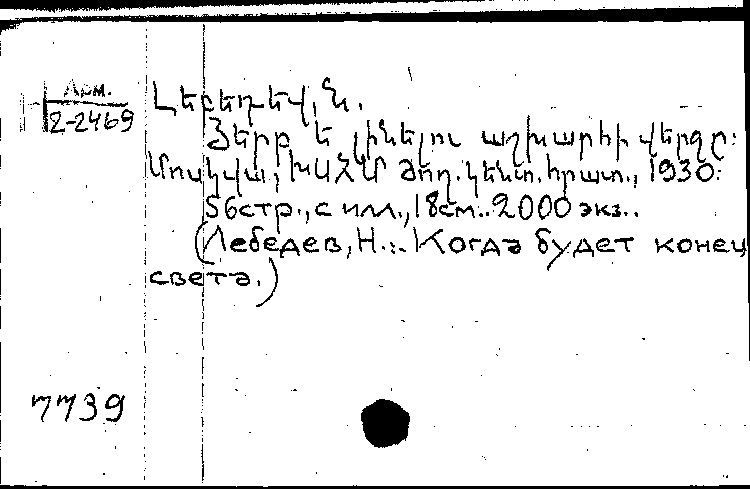 Арм.
2-2469
Լեբեդեվ, Ն.
Յերբ ե լինելու աշխարհի վերջը:
Մոսկվա, ԽՍՀՄ Ժող. կենտ. հրատ., 1930:
56стр., с илл., 18см.. 2000 экз..
(Лебедев, Н.:. Когда будет конец
света.)
7739